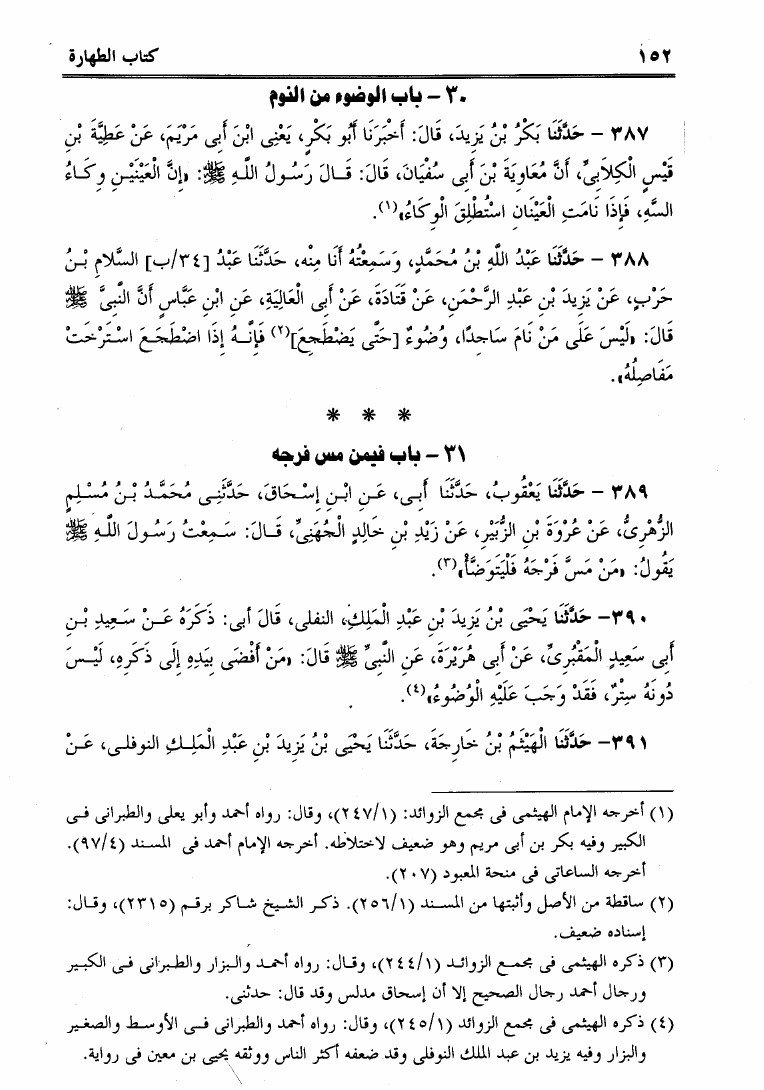 ١٥٢ كتاب الطهارة
٣٠ – باب الوضوء من النوم
٣٨٧ – حَدَّثَنَا بَكْرُ بْنُ يَزِيدَ، قَالَ: أَخْبَرَنَا أَبُو بَكْرٍ، يَعْنِى ابْنَ أَبِى مَرْيَمَ، عَنْ عَطِيَّةَ بْنِ
قَيْسٍ الْكِلَابِىِّ، أَنَّ مُعَاوِيَةَ بْنَ أَبِى سُفْيَانَ، قَالَ: قَـالَ رَسُـولُ اللَّـهِ ﷺ: «إِنَّ الْعَيْنَيْـنِ وِكَـاءُ
السَّهِ، فَإِذَا نَامَتِ الْعَيْنَانِ اسْتُطْلِقَ الْوِكَاءُ»(١).
٣٨٨ – حَدَّثَنَا عَبْدُ اللَّهِ بْنُ مُحَمَّدٍ، وَسَمِعْتُهُ أَنَا مِنْه، حَدَّثَنَا عَبْدُ [٣٤/ب] السَّلَامِ بْـنُ
حَرْبٍ، عَنْ يَزِيدَ بْنِ عَبْدِ الرَّحْمَنِ، عَنْ قَتَادَةَ، عَنْ أَبِى الْعَالِيَةِ، عَنِ ابْنِ عَبَّاسٍ أَنَّ النَّبِىَّ ﷺ
قَالَ: «لَيْسَ عَلَى مَنْ نَامَ سَاجِدًا، وُضُوءٌ [حَتَّى يَضْطَجِعَ](٢) فَإِنَّـهُ إِذَا اضْطَجَـعَ اسْـتَرْخَتْ
مَفَاصِلُهُ».
* * *
٣١ – باب فيمن مس فرجه
٣٨٩ – حَدَّثَنَا يَعْقُوبُ، حَدَّثَنَا أَبِى، عَـنِ ابْـنِ إِسْـحَاقَ، حَدَّثَنِـى مُحَمَّـدُ بْـنُ مُسْـلِمٍ
الزُّهْرِىُّ، عَنْ عُرْوَةَ بْنِ الزُّبَيْرِ، عَنْ زَيْدِ بْنِ خَالِدٍ الْجُهَنِىِّ، قَـالَ: سَـمِعْتُ رَسُـولَ اللَّـهِ ﷺ
يَقُولُ: «مَنْ مَسَّ فَرْجَهُ فَلْيَتَوَضَّأْ»(٣).
٣٩٠– حَدَّثَنَا يَحْيَى بْنُ يَزِيدَ بْنِ عَبْدِ الْمَلِكِ، النفلى، قَالَ أبى: ذَكَرَهُ عَـنْ سَـعِيدِ بْـنِ
أَبِى سَعِيدٍ الْمَقْبُرِىِّ، عَنْ أَبِى هُرَيْرَةَ، عَنِ النَّبِىِّ ﷺ قَالَ: «مَنْ أَفْضَى بِيَدِهِ إِلَى ذَكَرِهِ، لَيْـسَ
دُونَهُ سِتْرٌ، فَقَدْ وَجَبَ عَلَيْهِ الْوُضُوءُ»(٤).
٣٩١– حَدَّثَنَا الْهَيْثَمُ بْنُ خَارِجَةَ، حَدَّثَنَا يَحْيَى بْنُ يَزِيدَ بْنِ عَبْدِ الْمَلِـكِ النوفلـى، عَـنْ
(١) أخرجه الإمام الهيثمى فى مجمع الزوائد: (٢٤٧/١)، وقال: رواه أحمد وأبو يعلى والطبرانى فـى
الكبير وفيه بكر بن أبى مريم وهو ضعيف لاختلاطه. أخرجه الإمام أحمد فى المسند (٩٧/٤).
أخرجه الساعاتى فى منحة المعبود (٢٠٧).
(٢) ساقطة من الأصل وأثبتها من المسند (٢٥٦/١). ذكر الشيخ شاكر برقم (٢٣١٥)، وقال:
إسناده ضعيف.
(٣) ذكره الهيثمى فى مجمع الزوائد (٢٤٤/١)، وقال: رواه أحمد والبزار والطبرانى فى الكبير
ورجال أحمد رجال الصحيح إلا أن إسحاق مدلس وقد قال: حدثنى.
(٤) ذكره الهيثمى فى مجمع الزوائد (٢٤٥/١)، وقال: رواه أحمد والطبرانى فـى الأوسط والصغير
والبزار وفيه يزيد بن عبد الملك النوفلى وقد ضعفه أكثر الناس ووثقه يحيى بن معين فى رواية.